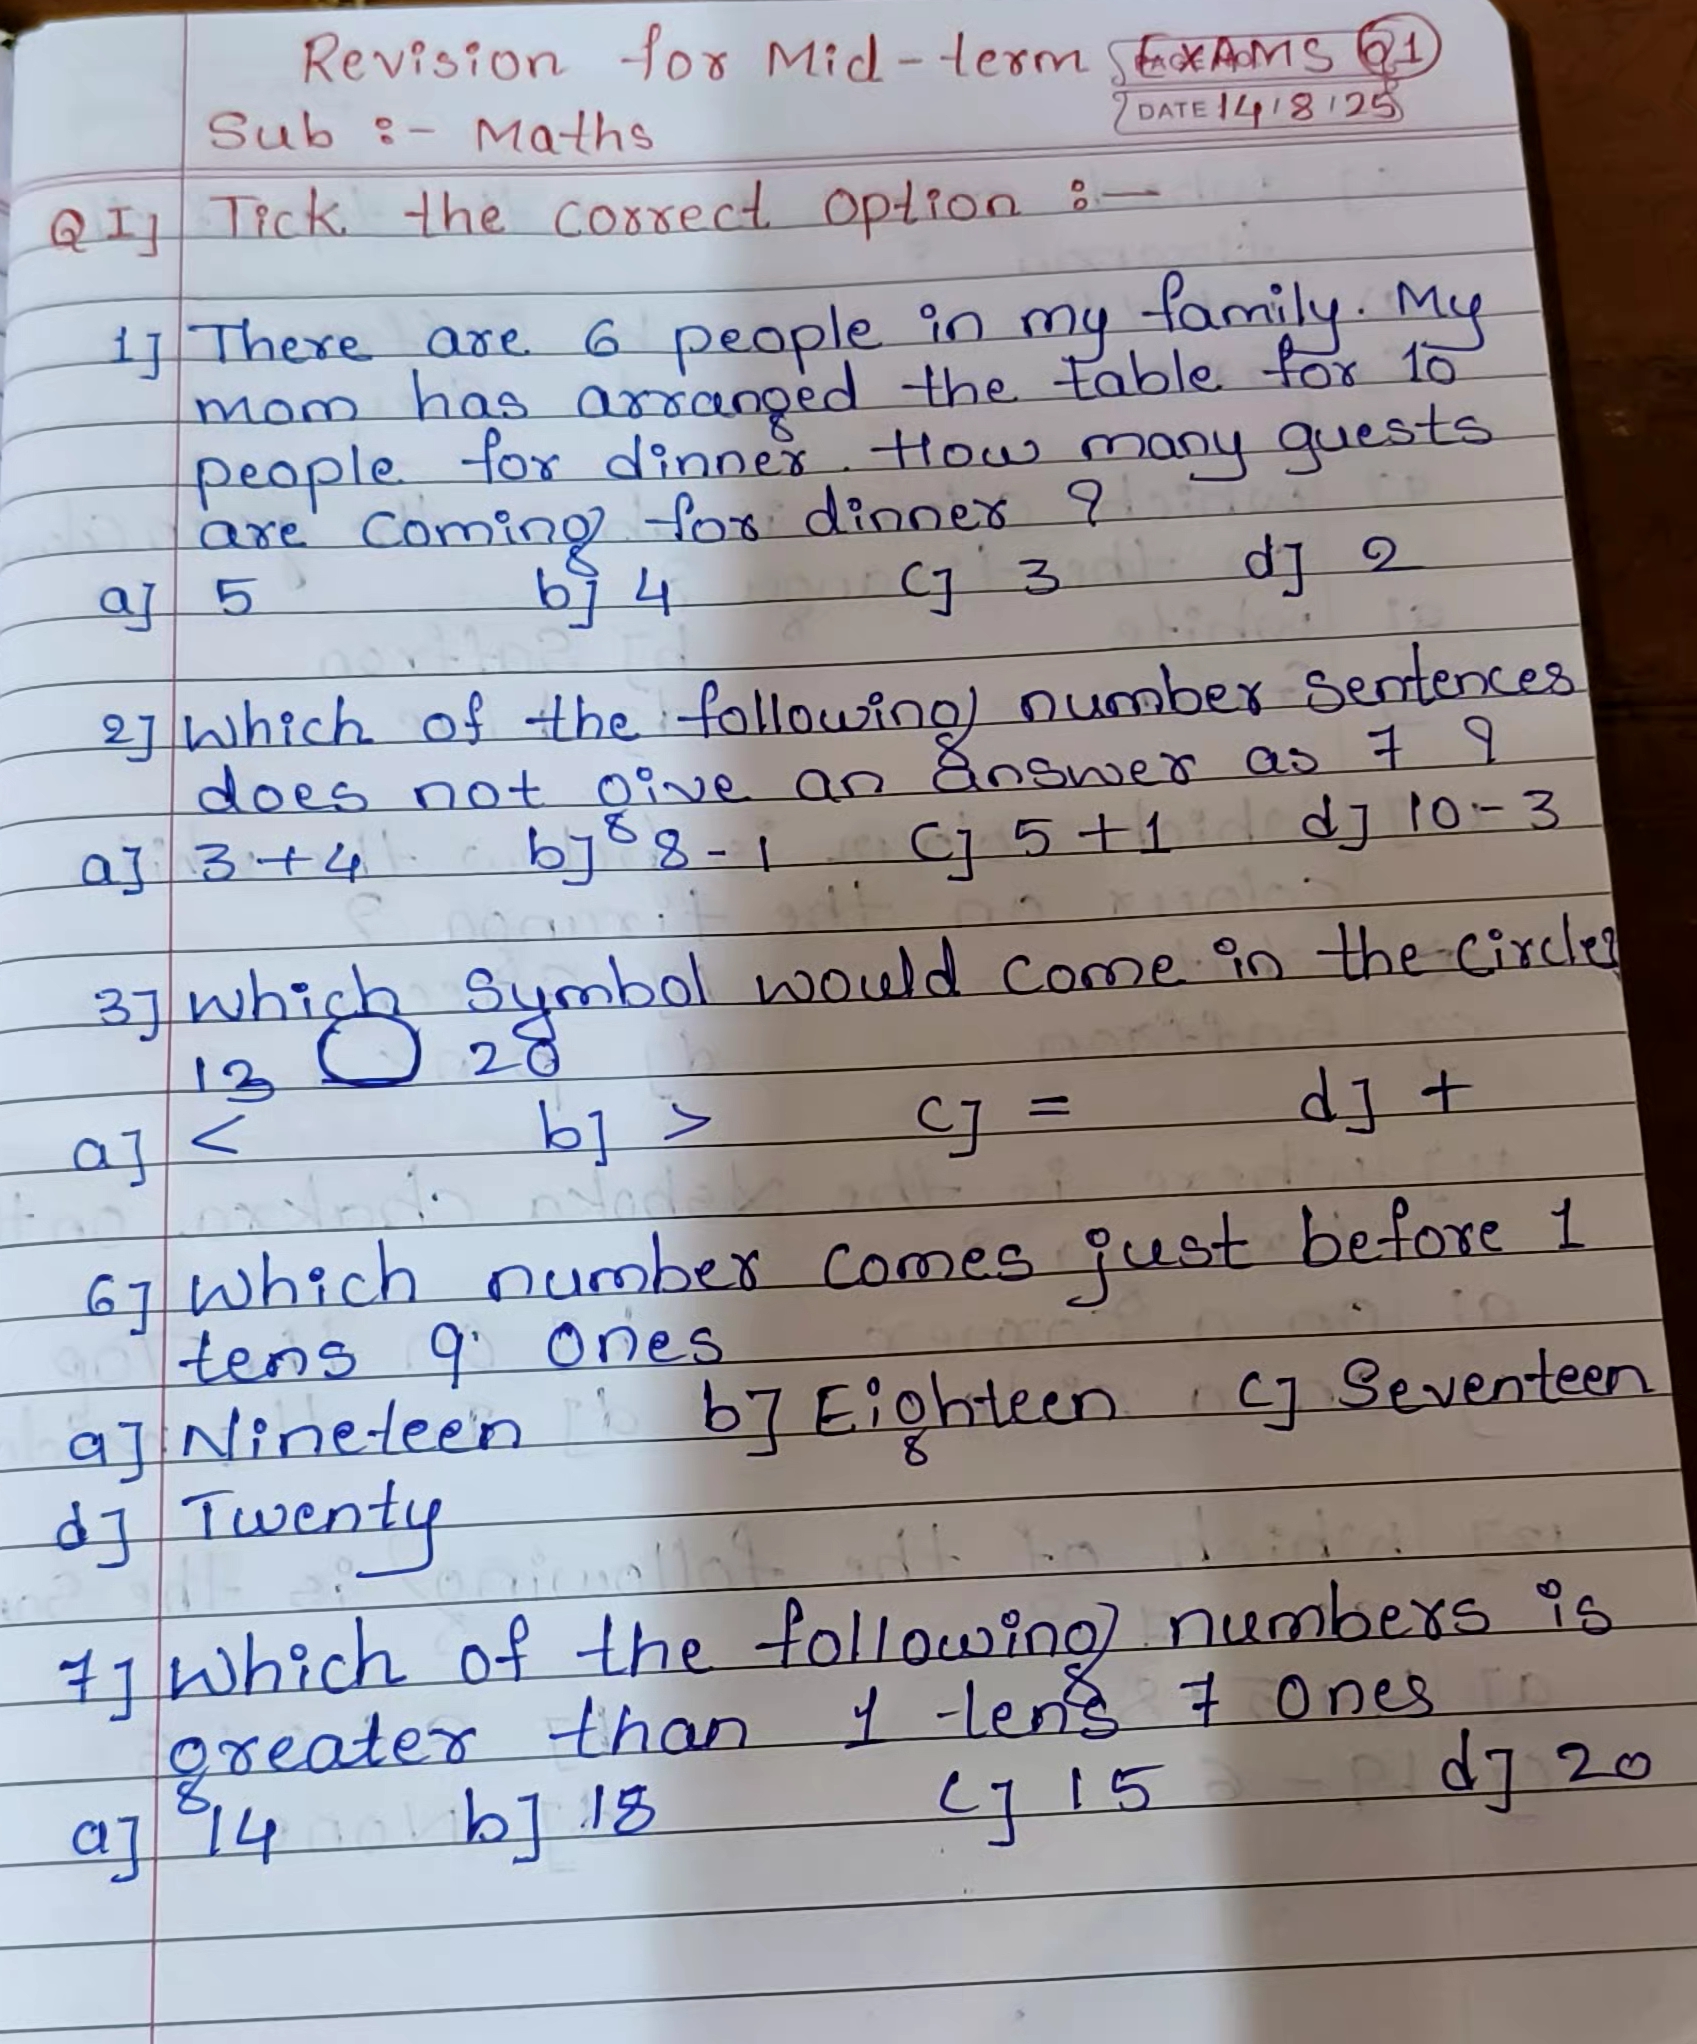 Revision for Mid-term EXAMS Q1
Sub :- Maths DATE 14/8/25
Q I] Tick the correct option :-
1] There are 6 people in my family. My
mom has arranged the table for 10
people for dinner. How many guests
are coming for dinner ?
a] 5 b] 4 c] 3 d] 2
2] Which of the following number sentences
does not give an answer as 7 ?
a] 3+4 b] 8-1 c] 5+1 d] 10-3
3] Which symbol would come in the circle?
13 ◯ 20
a] < b] > c] = d] +
6] Which number comes just before 1
tens 9 ones
a] Nineteen b] Eighteen c] Seventeen
d] Twenty
7] Which of the following numbers is
greater than 1 tens 7 ones
a] 14 b] 18 c] 15 d] 20